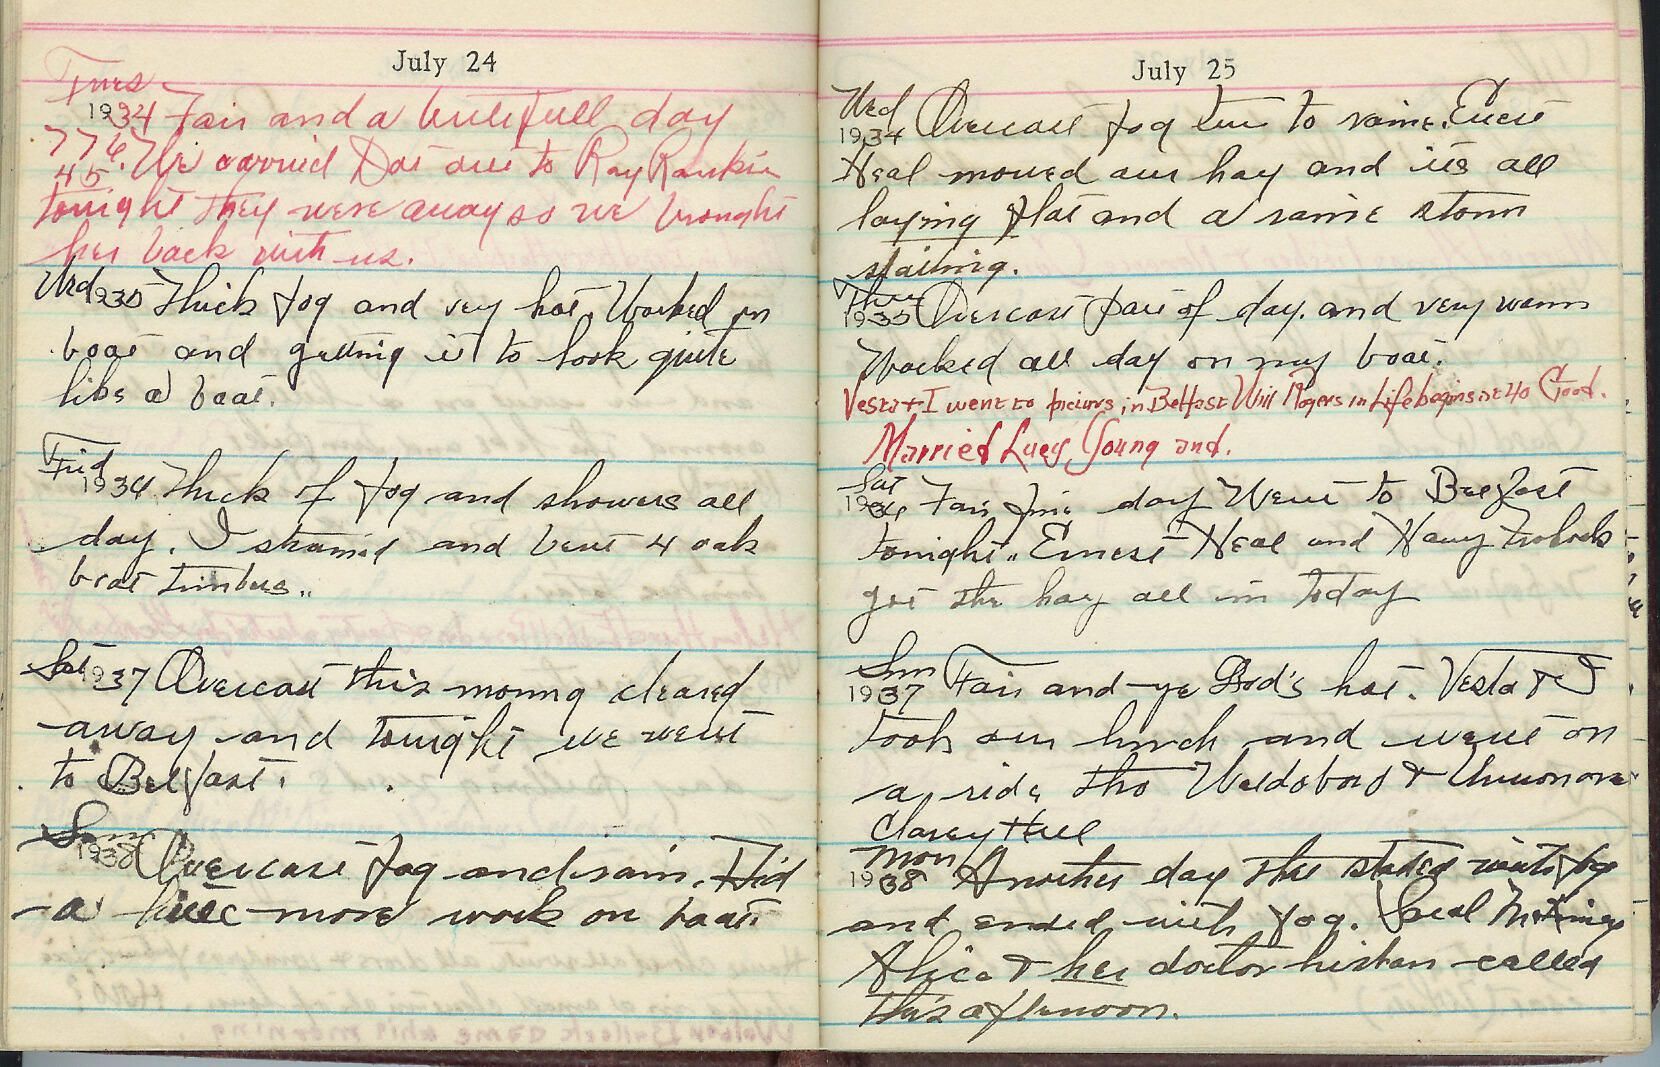 July 24
Tues
1934 Fair and a butifull day
776. We carried Dot over to Ray Rankin
45
tonight they were away so we brought
her back with us.
Wed 1935 Thick fog and very hot. Worked on
boat and getting it to look quite
like a boat.
Frid
1936 Thick of fog and showers all
day. I steamed and bent 4 oak
boat timbers..
Sat 1937 Overcast this morning cleared
away and tonight we went
to Belfast.
Sun
1938 Overcast fog and rain. Did
a little more work on boat
July 25
Wed
1934 Overcast fog tur to raine. Ernest
Neal mowed our hay and its all
laying flat and a raine storm
staring.
Thur
1935 Overcast part of day. and very warm
Worked all day on my boat.
Vesta + I went to picturs, in Belfast Will Rogers in Life begins at 40 Good.
Married Lucy Young and.
Sat
1936 Fair fine day Went to Belfast
tonight.. Ernest Neal and Harry
got the hay all in today
Sun
1937 Fair and ye God's hot. Vesta & I
took our lunch and went on
a ride thro Waldoboro &
Clarry Hill
Mon
1938 Another day that stated with fog
and ended with fog. Seal
Alice & her doctor called
this afternoon.